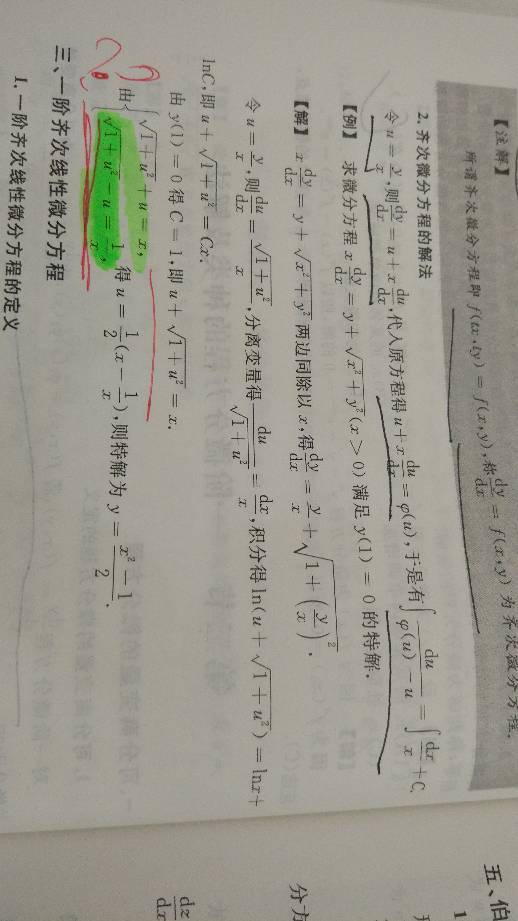 【注解】
所谓齐次微分方程即 f(tx,ty) = f(x,y),称 dy/dx = f(x,y) 为齐次微分方程.
2. 齐次微分方程的解法
令 u = y/x,则 dy/dx = u + x du/dx,代入原方程得 u + x du/dx = φ(u),于是有 ∫ du/(φ(u) − u) = ∫ dx/x + C.
【例】 求微分方程 x dy/dx = y + √(x² + y²) (x > 0) 满足 y(1) = 0 的特解.
【解】 x dy/dx = y + √(x² + y²) 两边同除以 x,得 dy/dx = y/x + √(1 + (y/x)²).
令 u = y/x,则 du/dx = √(1 + u²)/x,分离变量得 du/√(1 + u²) = dx/x,积分得 ln(u + √(1 + u²)) = lnx +
lnC,即 u + √(1 + u²) = Cx.
由 y(1) = 0 得 C = 1,即 u + √(1 + u²) = x.
由 { √(1 + u²) + u = x, √(1 + u²) − u = 1/x, 得 u = 1/2 (x − 1/x),则特解为 y = (x² − 1)/2.
??
三、一阶齐次线性微分方程
1. 一阶齐次线性微分方程的定义
五、伯
1
分方
dz/dx